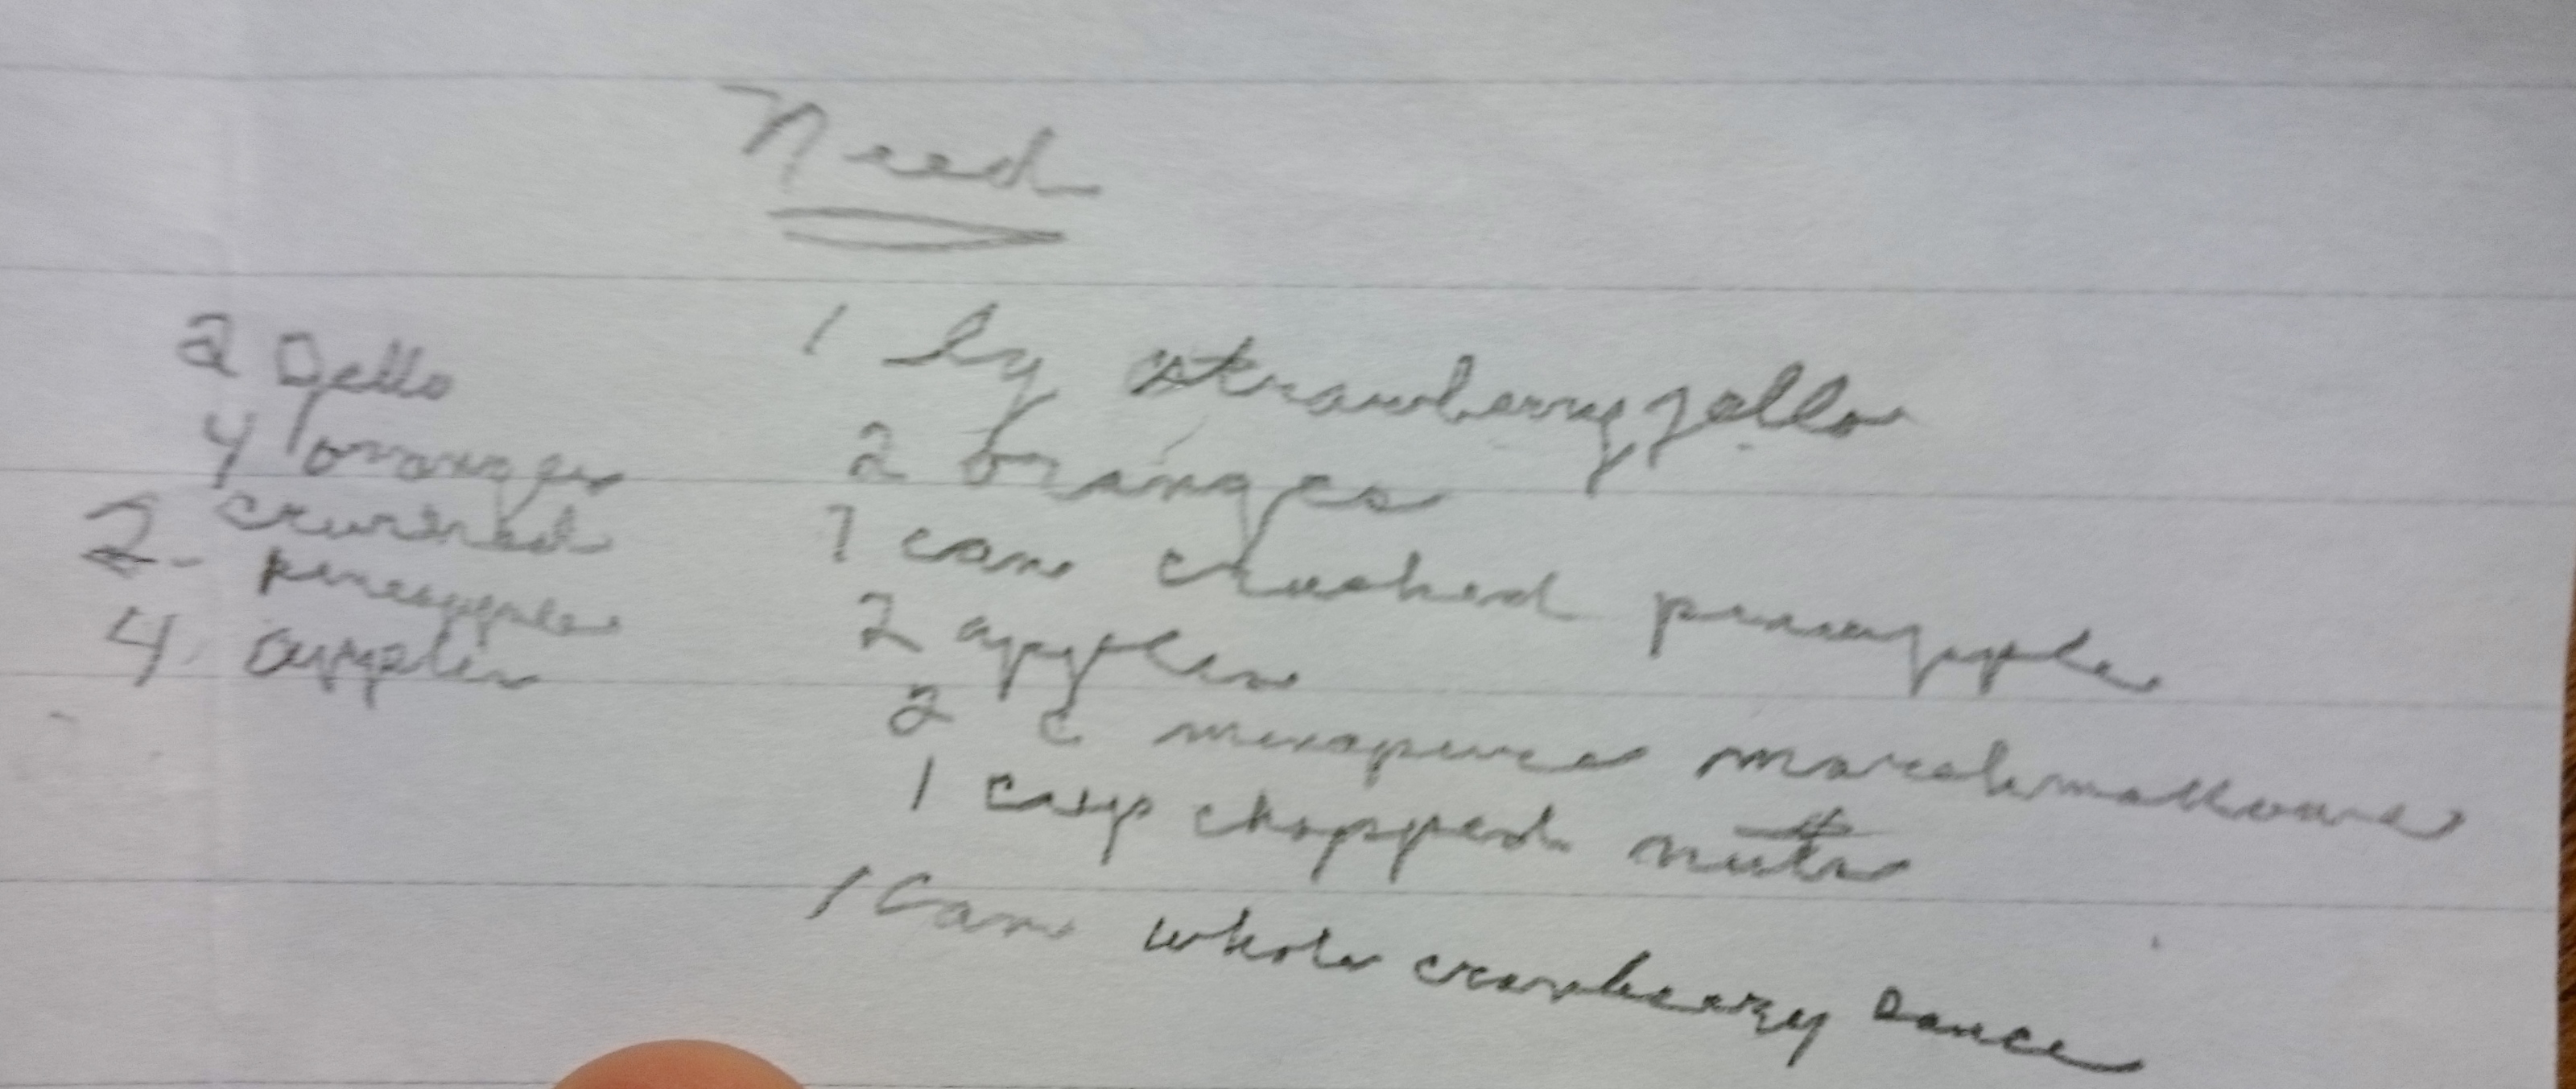 Need
2 Jello
4 oranges
2 - crushed
pineapple
4 apples
1 lg strawberry jello
2 oranges
1 can crushed pineapple
2 apples
2 c marshmallows
1 cup chopped nuts
1 Can whole cranberry sauce